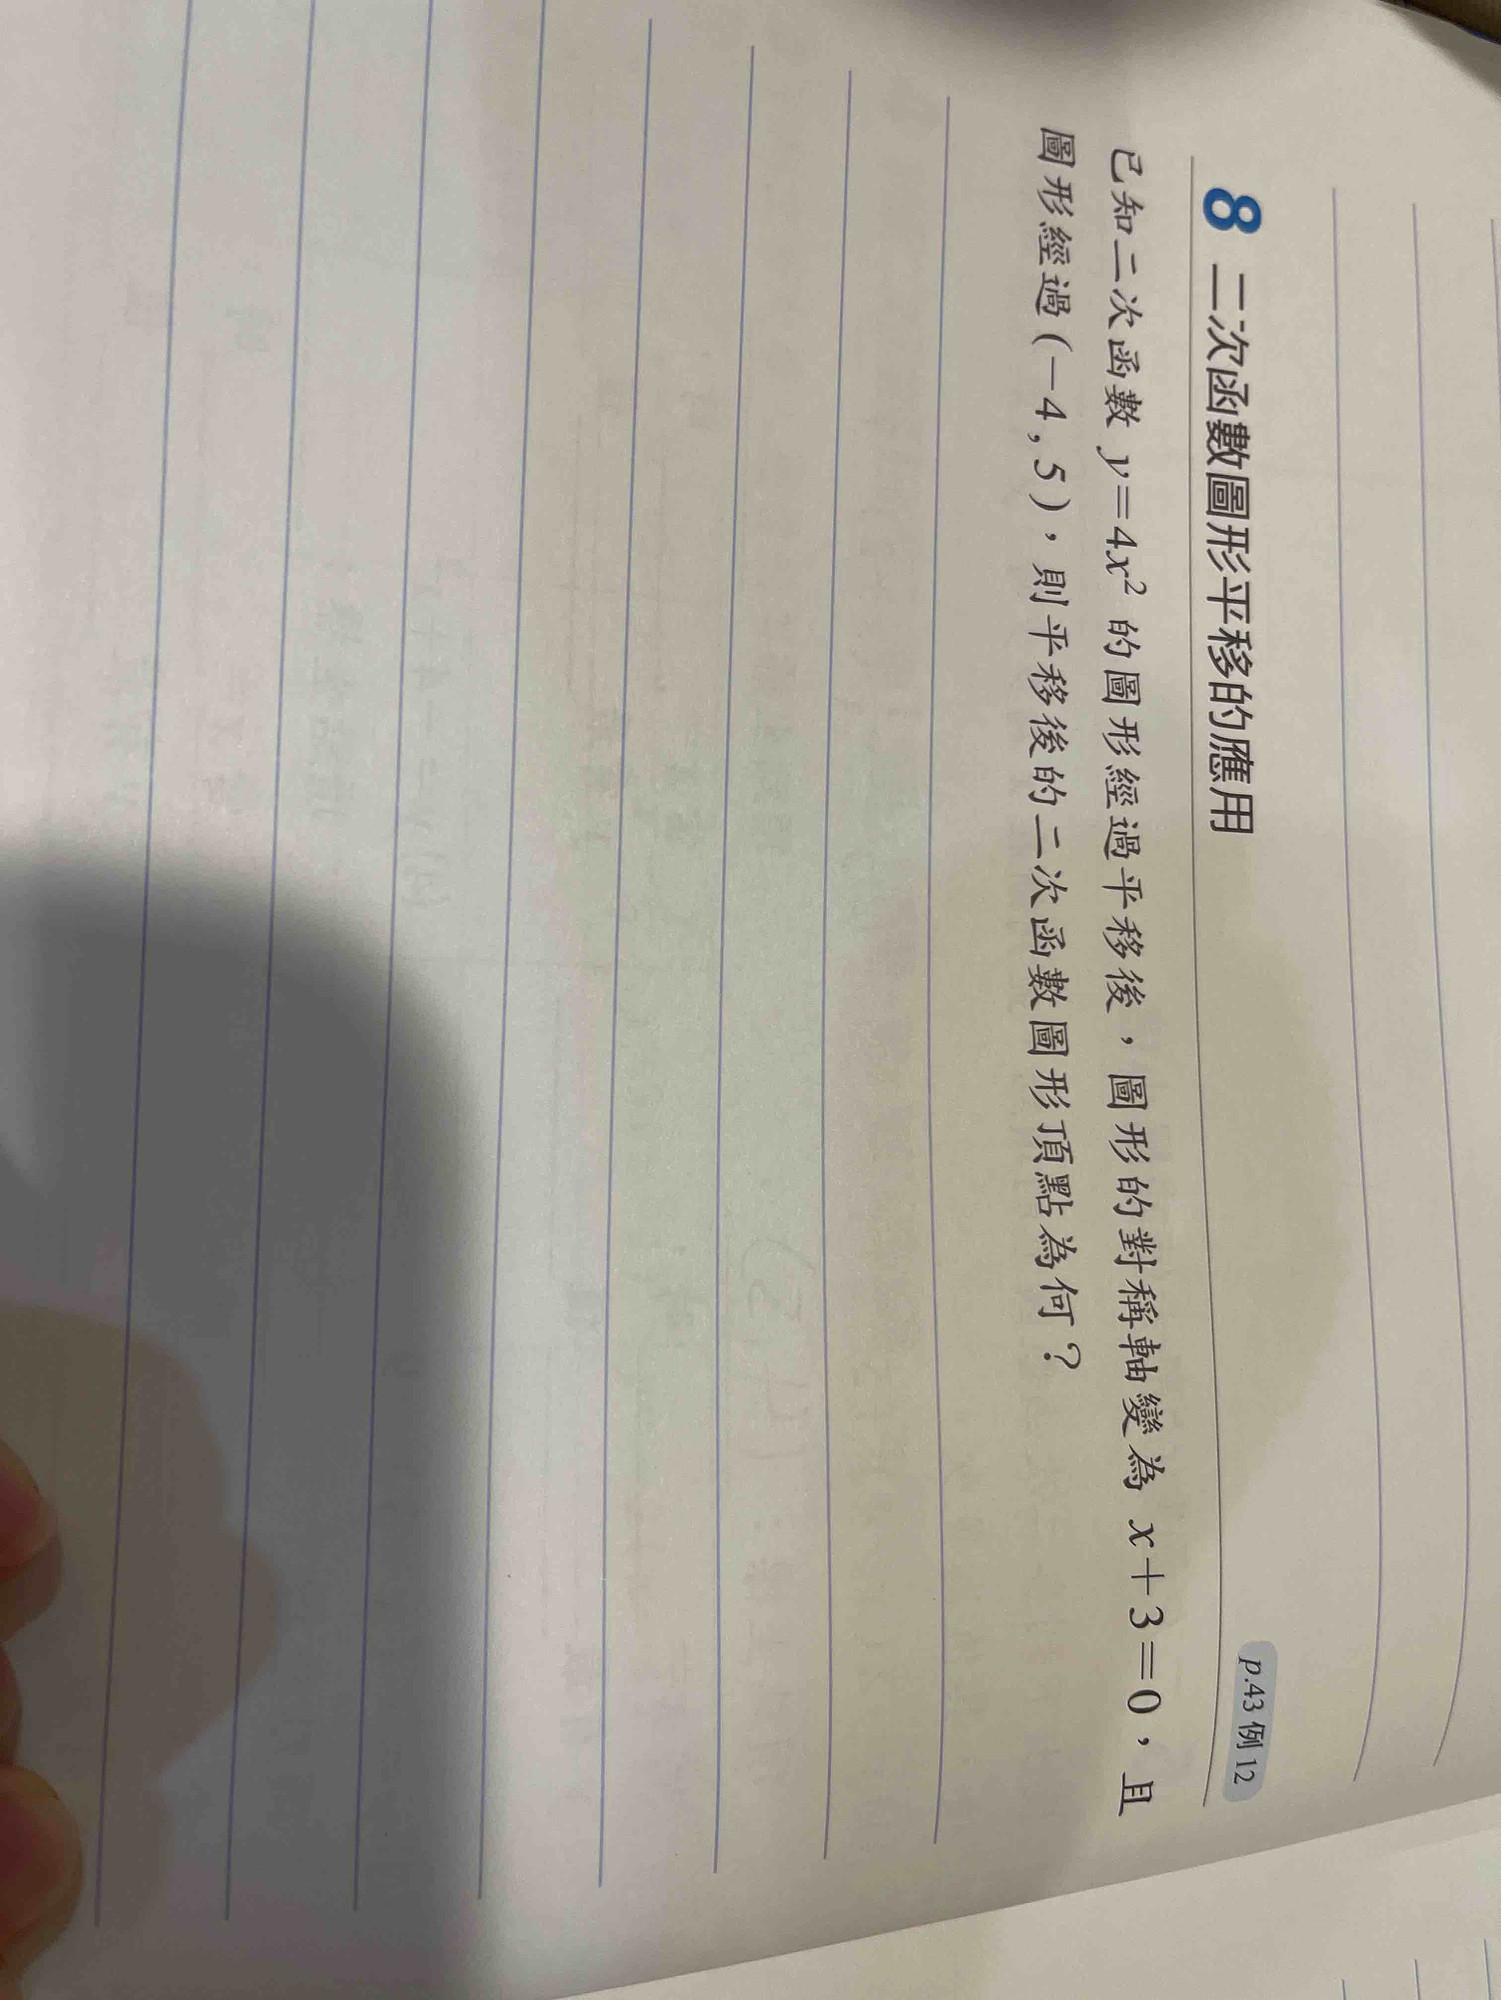 8 二次函數圖形平移的應用
p.43 例 12
已知二次函數 y=4x² 的圖形經過平移後，圖形的對稱軸變為 x+3=0，且
圖形經過(-4,5)，則平移後的二次函數圖形頂點為何？